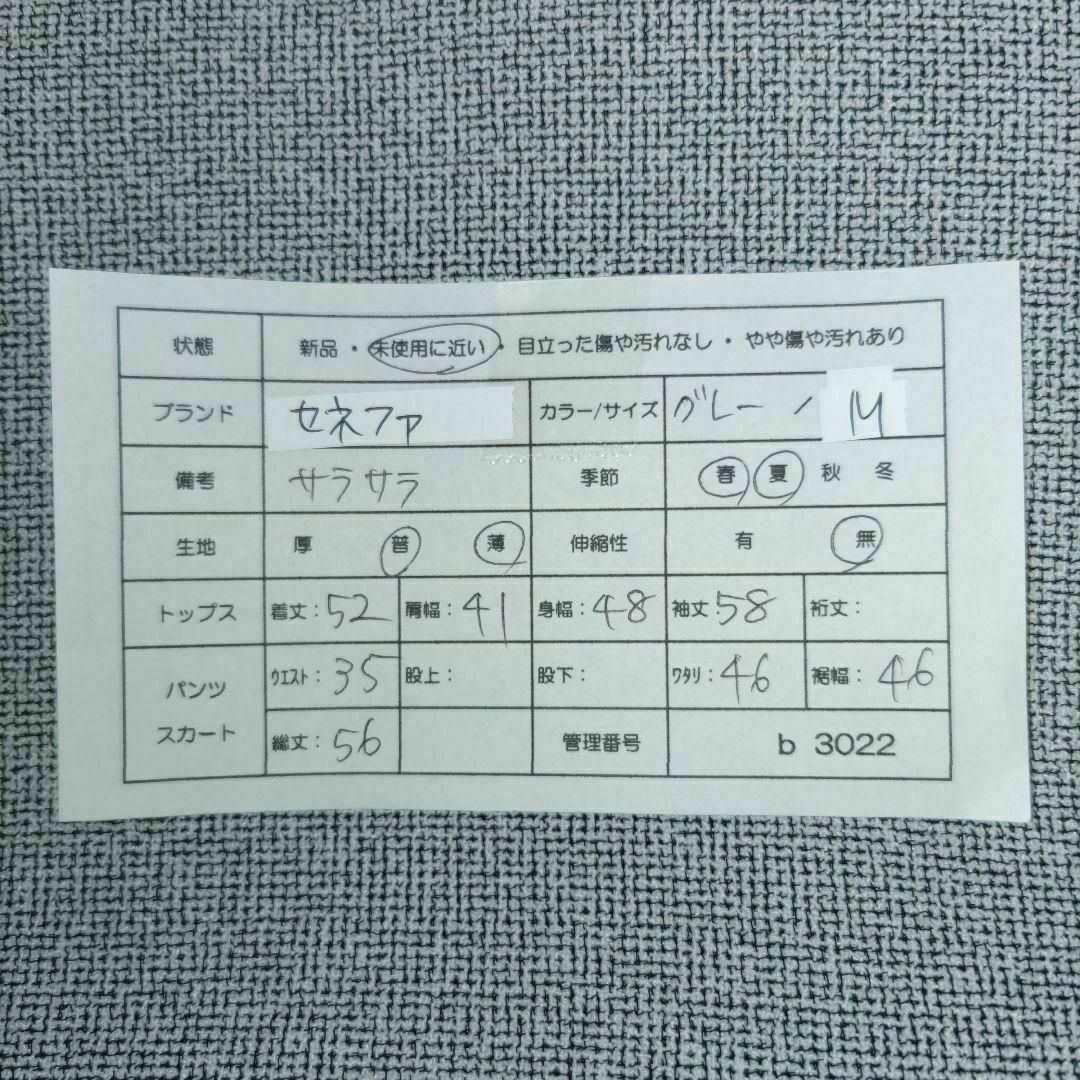 状態 新品・未使用に近い・目立った傷や汚れなし・やや傷や汚れあり
ブランド セネファ カラー/サイズ グレー / M
備考 サラサラ 季節 春 夏 秋 冬
生地 厚 普 薄 伸縮性 有 無
トップス 着丈：52 肩幅：41 身幅：48 袖丈 58 裄丈：
パンツ スカート ウエスト：35 股上： 股下： ワタリ：46 裾幅：46
総丈：56 管理番号 b 3022